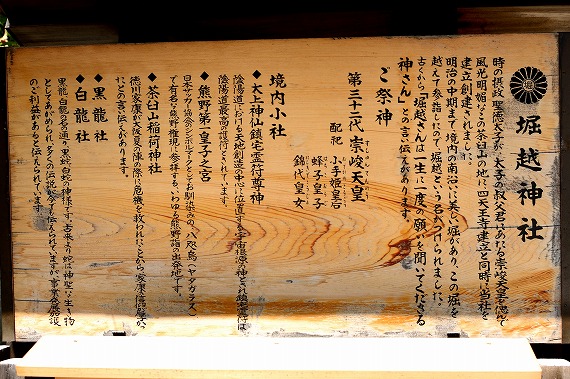 堀越神社
時の摂政 聖徳太子が、太子の叔父君にあたる崇峻天皇を偲んで
風光明媚なこの茶臼山の地に、四天王寺建立と同時に当社を
建立創建されました。
明治の中期まで境内の南沿いに美しい堀があり、この堀を
越えて参詣したので、堀越という名がつけられました。
古くから「堀越さんは一生に一度の願いを聞いてくださる
神さん」との言い伝えがあります。
ご祭神
第三十二代 崇峻天皇
すしゅんてんのう
配祀 小手姫皇后
蜂子皇子
錦代皇女
境内小社
◆太上神仙鎮宅霊符尊神
陰陽道における天地創造の中心に位置する宇宙根源の神さんで、鎮宅霊符は、
陰陽道最高の護符とされています。
◆熊野第一皇子之宮
日本サッカー協会のシンボルマークとしてお馴染みの、八咫烏(ヤアガラス)
で有名な熊野権現に参拝する、いわゆる熊野詣の出発地です。
◆茶臼山稲荷神社
徳川家康が大坂夏の陣の際に危機を救われたことから、家康の信仰厚か
ったとの言い伝えがあります。
◆黒龍社
◆白龍社
黒龍・白龍の名の通り、黒蛇・白蛇の神様です。古来より蛇は神聖な生き物
としてあがめられ、多くの伝説が今でも伝えられていますが、事業発展・金銭
のご利益があると伝えられています。